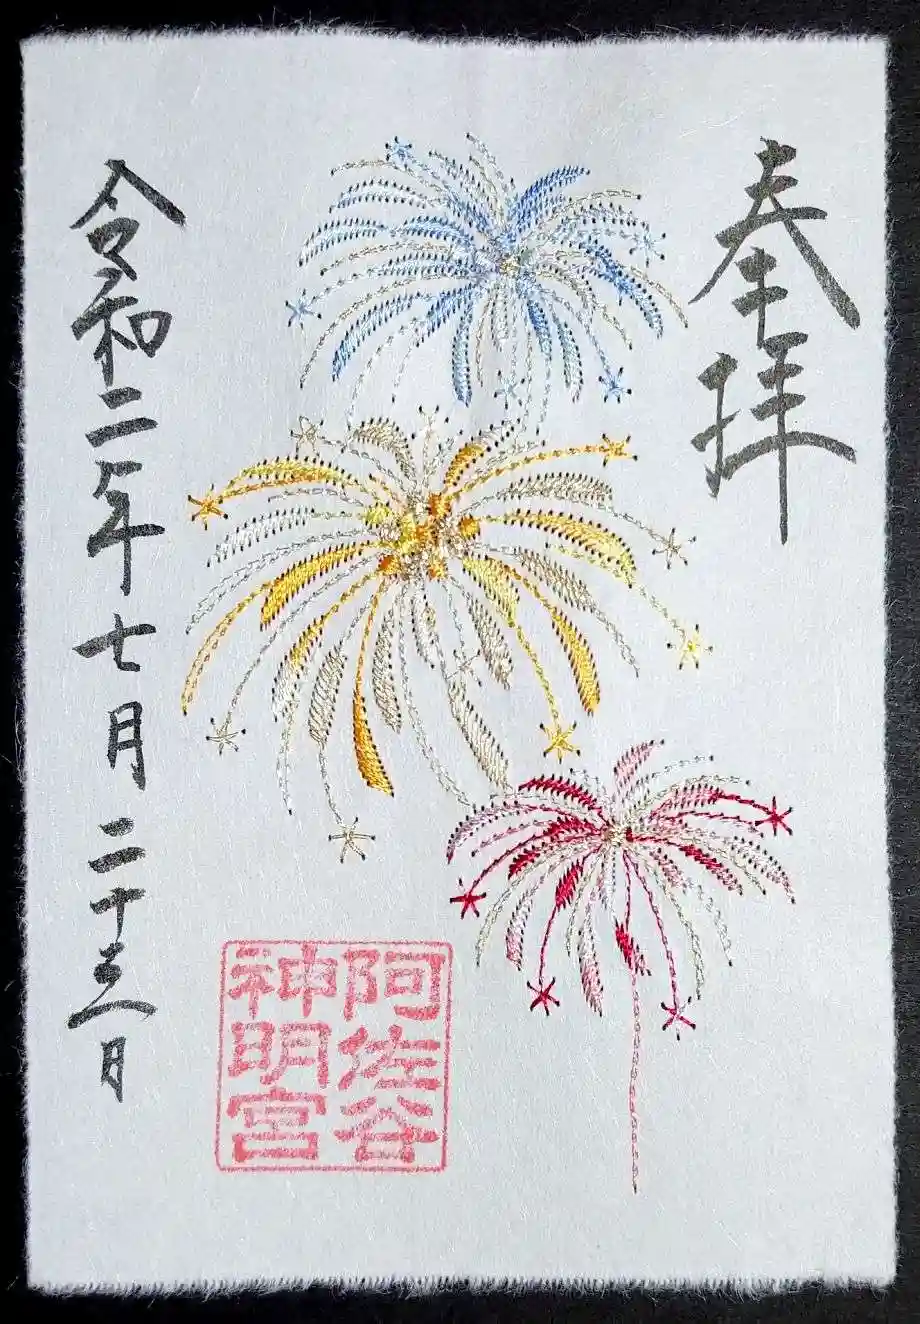 奉拝
阿佐谷
神明宮
令和二年七月二十三日